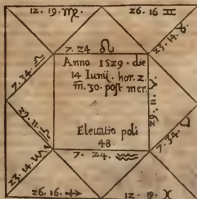 12. 19. ♍
26. 16 ♊
7. 24 ♌
23. 14. ♉
7. 34. ♎
Anno 1529. die
14 Iunij. hor. 2.
m. 30. post mer.
Eleuatio poli
48.
7. 24. ♒
23. 14. ♏
26. 16. ♐
12. 19. ♓